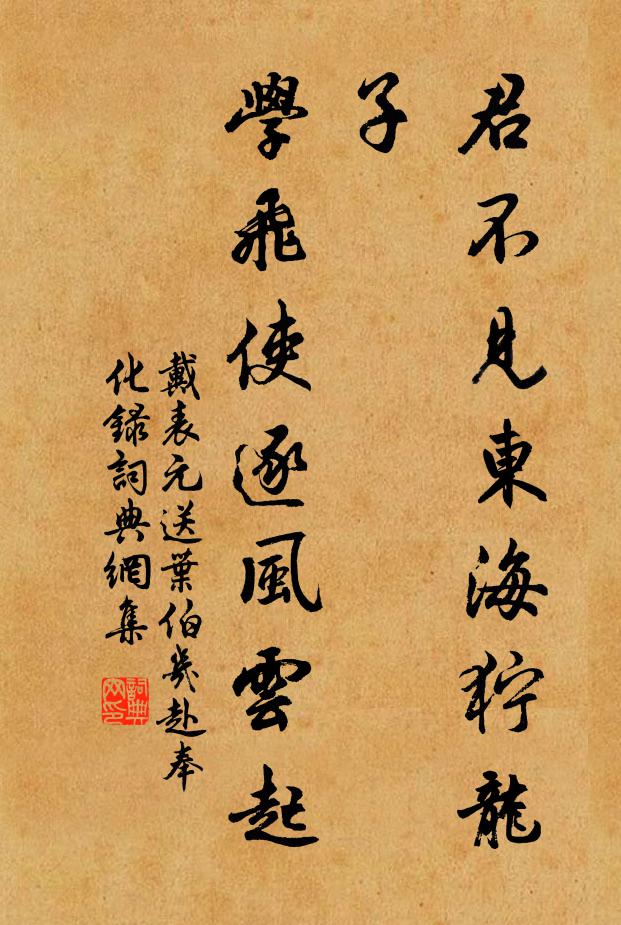 君不見東海狞龍
子
學飛使逐風雲起
戴表元送葉伯幾赴奉
化録詞典網集
詞典
网印